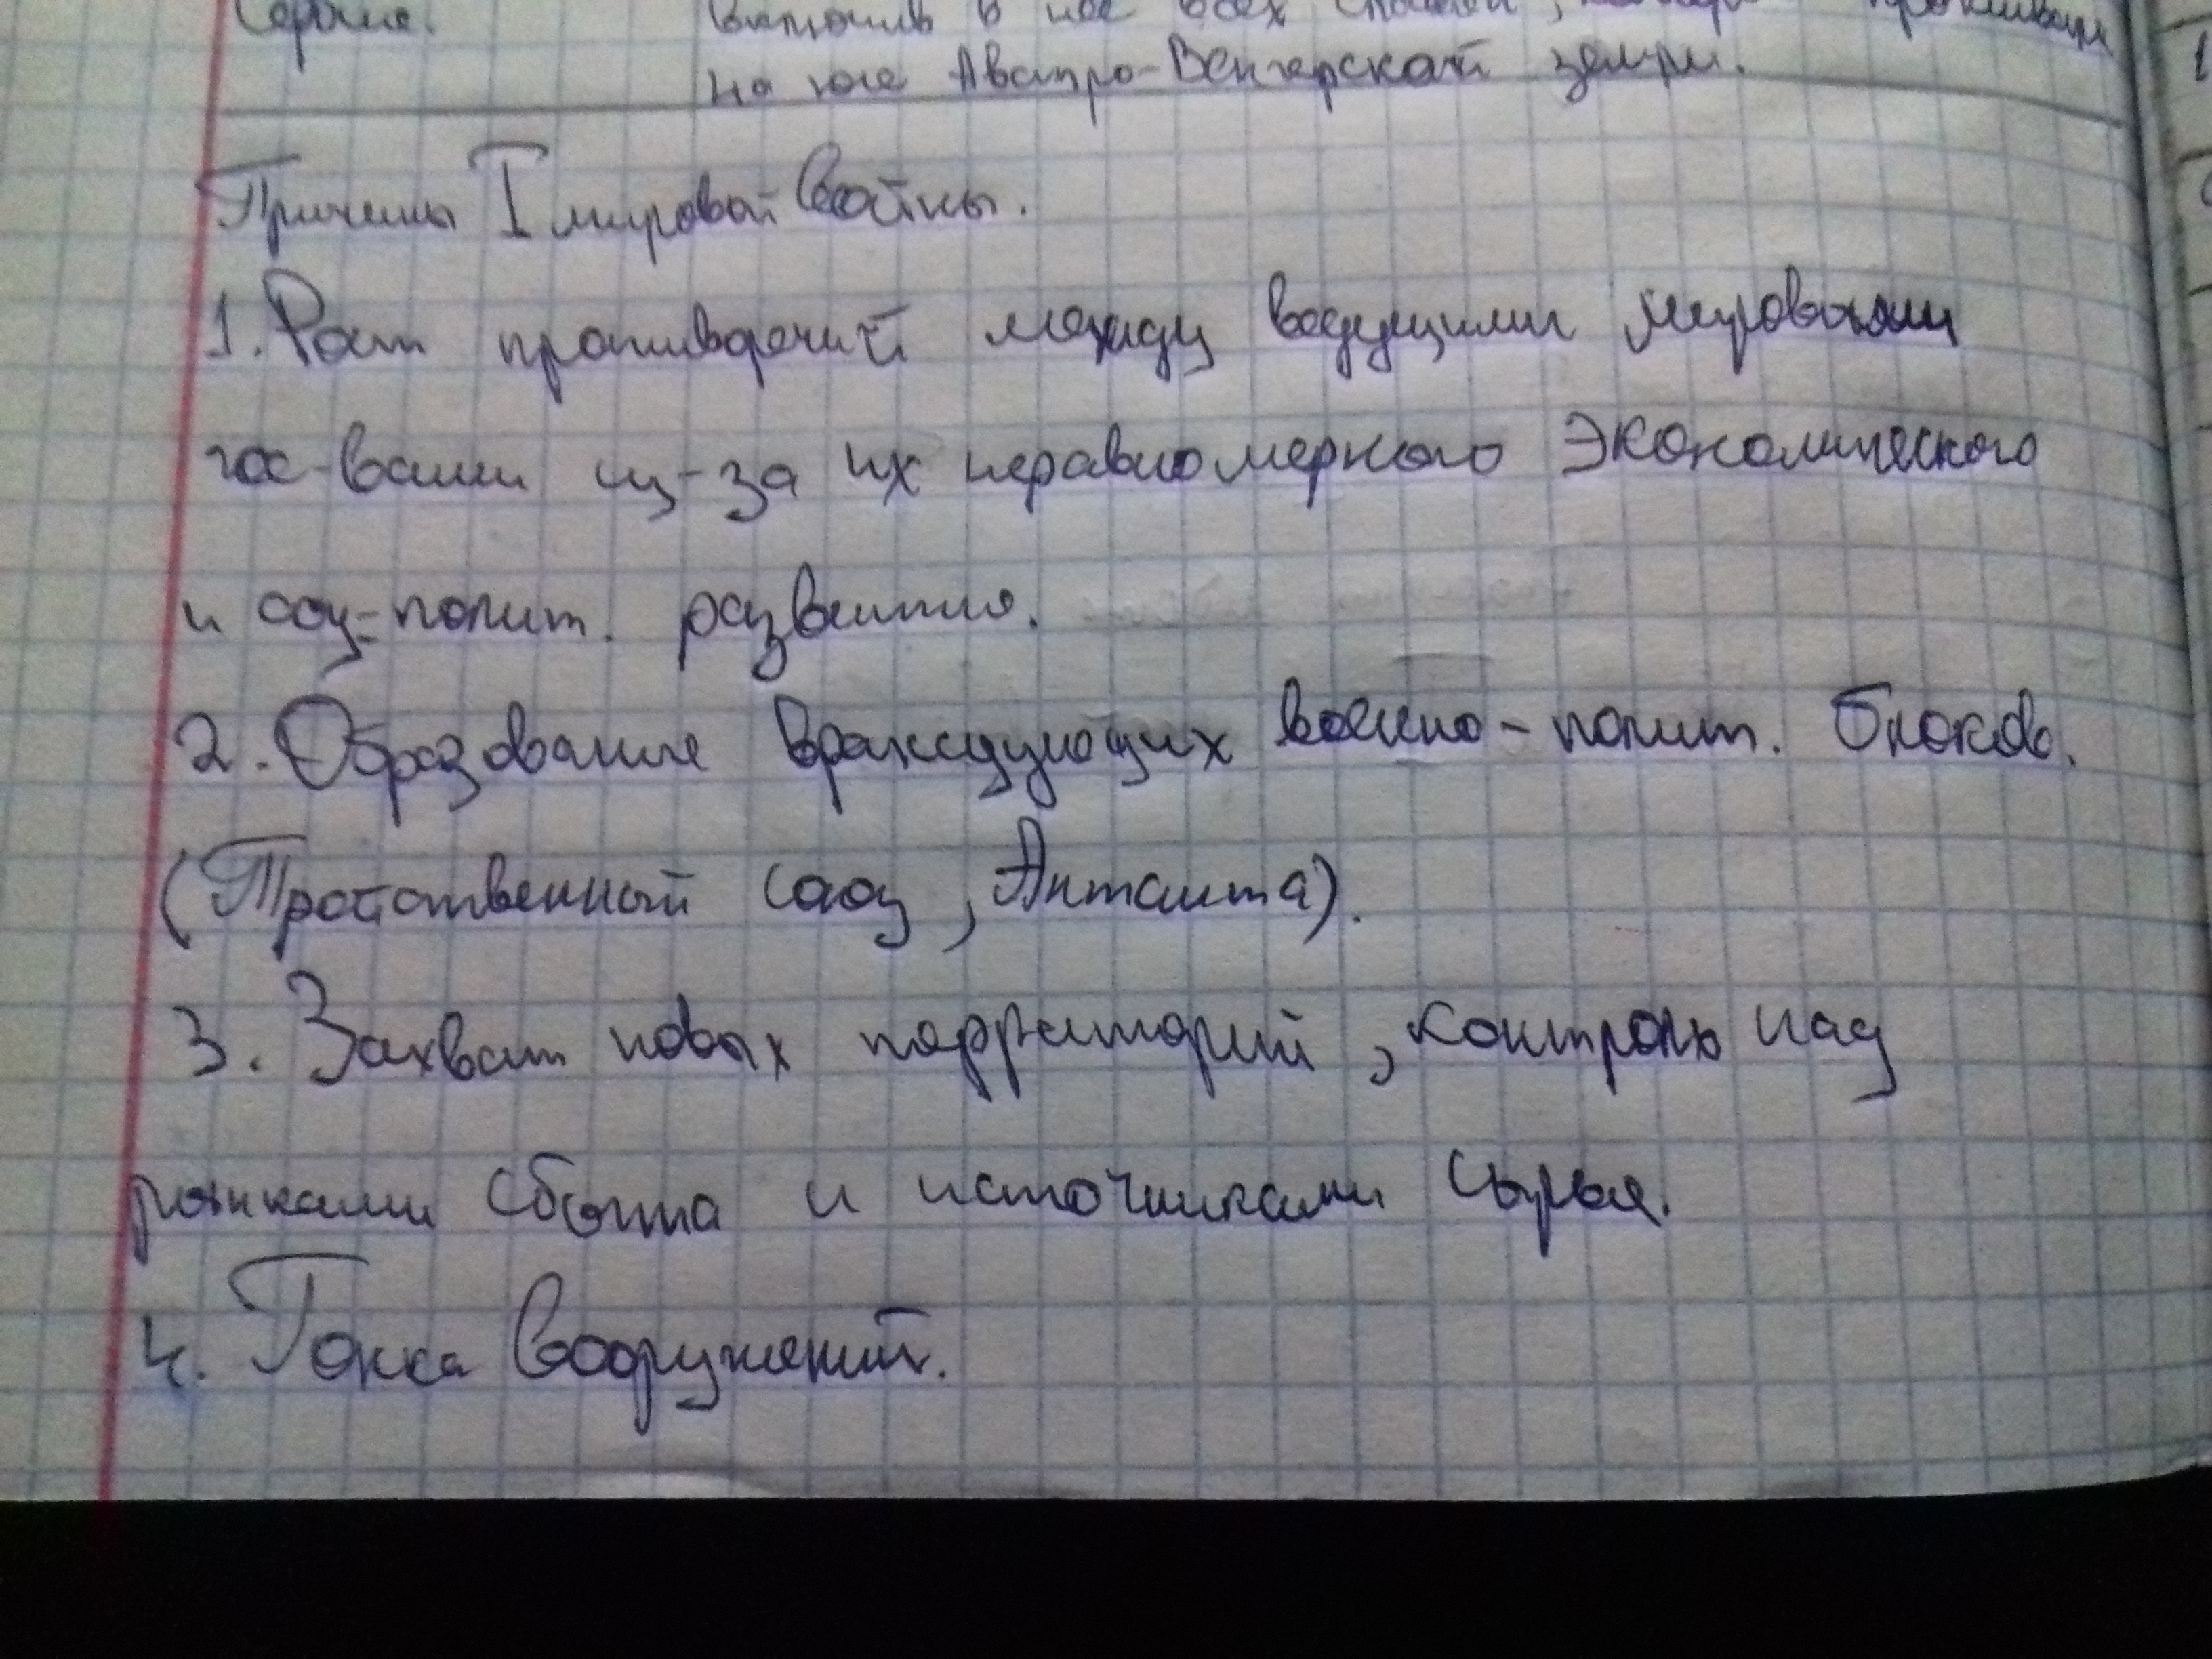 Сербия. включив в неё всех
на юге Австро-Венгерской земли.
Причины I мировой войны.
1. Рост противоречий между ведущими мировыми
гос-вами из-за их неравномерного экономического
и соц-полит. развития.
2. Образование враждующих военно-полит. блоков.
(Тройственный союз, Антанта).
3. Захват новых территорий, контроль над
рынками сбыта и источниками сырья.
4. Гонка вооружений.